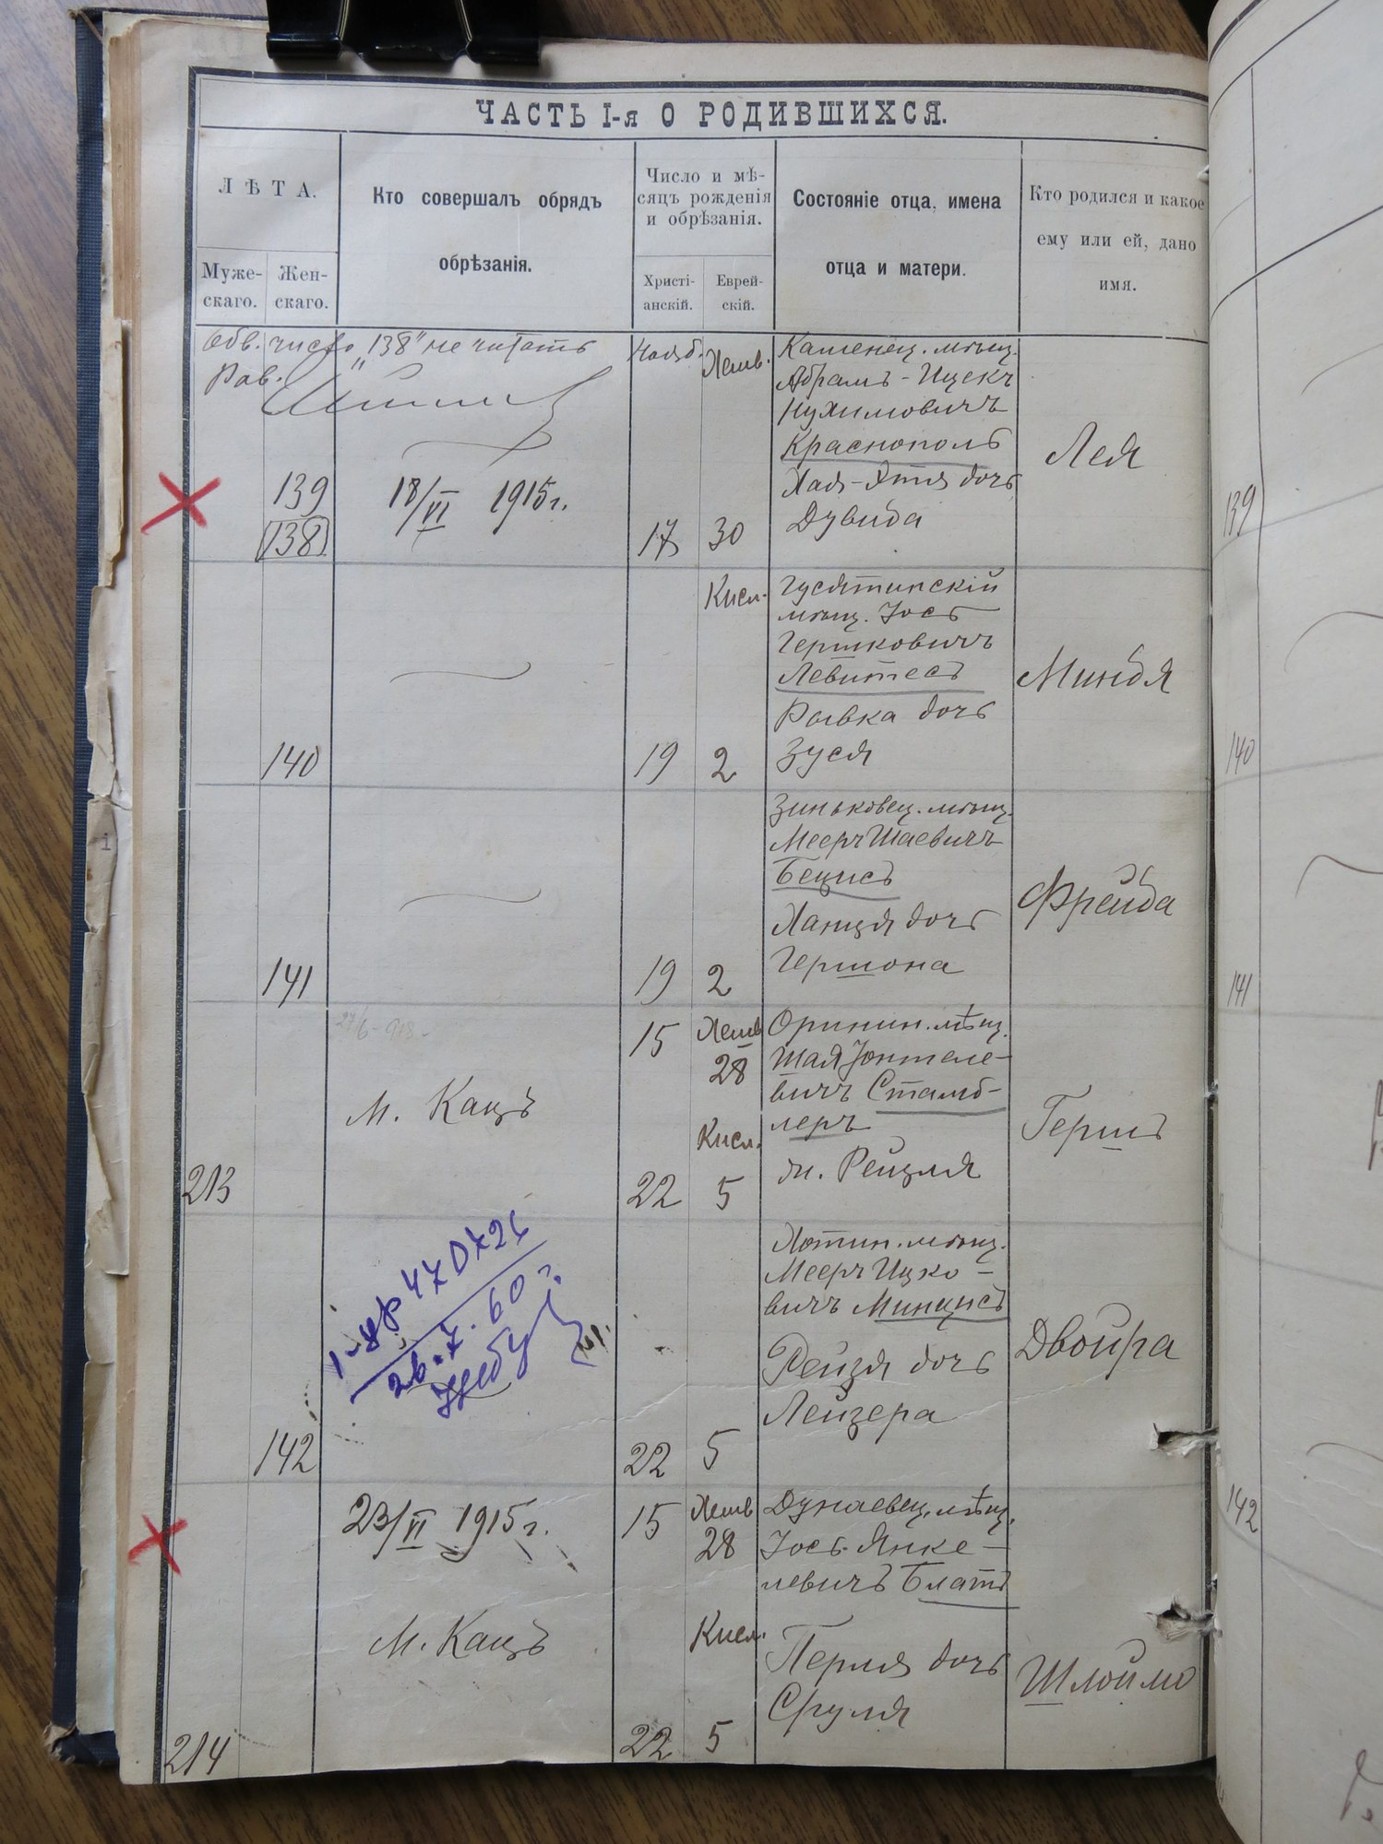 ЧАСТЬ I-я О РОДИВШИХСЯ.
ЛѢТА.
Муже-
скаго.
Жен-
скаго.
Кто совершалъ обрядъ
обрѣзанія.
Число и мѣ-
сяцъ рожденія
и обрѣзанія.
Христі-
анскій.
Еврей-
скій.
Состояніе отца, имена
отца и матери.
Кто родился и какое
ему или ей, дано
имя.
Обв. число „138" не читать
Рав.
139
138
18/VI 1915 г.
Нояб.
17
Хешв.
30
Каменец. мѣщ.
Абрамъ-Ицекъ
Нухимовичъ
Краснополь
Хая-Этя дочь
Дувида
Лея
140
19
Кисл.
2
Гусятинскій
мѣщ. Іось
Гершковичъ
Левитесъ
Рывка дочь
Зуся
Миндя
141
19
2
Зиньковец. мѣщ.
Мееръ Шаевичъ
Бецисъ
Ханця дочь
Гершона
Фрейда
213
М. Кацъ
15
22
Хешв
28
Кисл.
5
Оринин. мѣщ.
Шая Іонтеле-
вичъ Стамб-
леръ
м. Рейзля
Гершъ
142
26.7.60 г.
22
5
Хотин. мѣщ.
Мееръ Ицко-
вичъ Минцисъ
Рейзя дочь
Лейзера
Двойра
214
23/VI 1915 г.
М. Кацъ
15
22
Хешв
28
Кисл.
5
Дунаевец. мѣщ.
Іось-Янке-
левичъ Блатъ
Перля дочь
Сруля
Шлоймо
139
140
141
142